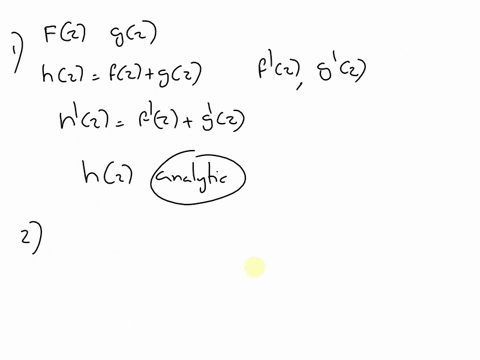 1) F(z) g(z)
h(z) = f(z) + g(z) f'(z), g'(z)
h'(z) = f'(z) + g'(z)
h(z) analytic
2)